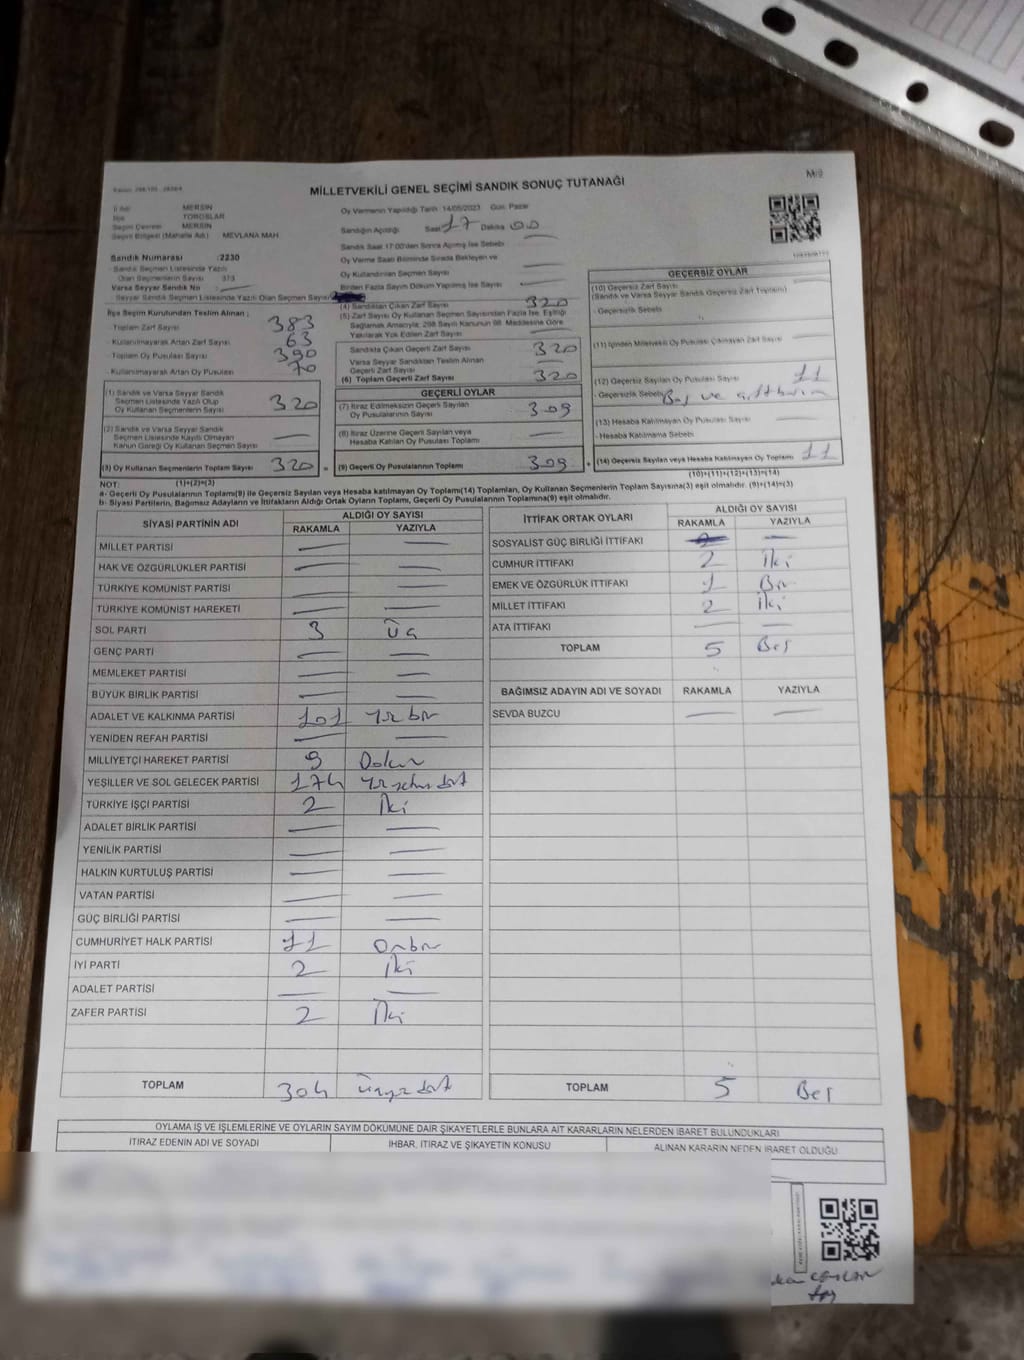 MİLLETVEKİLİ GENEL SEÇİMİ SANDIK SONUÇ TUTANAĞI
İl Adı : MERSİN
İlçe TOROSLAR
Seçim Çevresi MERSİN
Seçim Bölgesi (Mahalle Adı) MEVLANA MAH
Sandık Numarası :2230
Sandık Seçmen Listesinde Yazılı
Olan Seçmenlerin Sayısı 373
Varsa Seyyar Sandık No
Seyyar Sandık Seçmen Listesinde Yazılı Olan Seçmen Sayısı
İlçe Seçim Kurulundan Teslim Alınan ;
Toplam Zarf Sayısı 383
Kullanılmayarak Artan Zarf Sayısı 63
Toplam Oy Pusulası Sayısı 390
Kullanılmayarak Artan Oy Pusulası 70
(1) Sandık ve Varsa Seyyar Sandık
Seçmen Listesinde Yazılı Olup
Oy Kullanan Seçmenlerin Sayısı 320
(2) Sandık ve Varsa Seyyar Sandık
Seçmen Listesinde Kayıtlı Olmayan
Kanun Gereği Oy Kullanan Seçmen Sayısı —
(3) Oy Kullanan Seçmenlerin Toplam Sayısı 320
(1)+(2)=(3)
Oy Vermenin Yapıldığı Tarih :14/05/2023 Gün: Pazar
Sandığın Açıldığı Saat 17 Dakika 00
Sandık Saat 17:00'den Sonra Açılmış İse Sebebi
Oy Verme Saati Bitiminde Sırada Bekleyen ve
Oy Kullandırılan Seçmen Sayısı —
Birden Fazla Sayım Döküm Yapılmış İse Sayısı —
(4) Sandıktan Çıkan Zarf Sayısı 320
(5) Zarf Sayısı Oy Kullanan Seçmen Sayısından Fazla İse, Eşitliği
Sağlamak Amacıyla; 298 Sayılı Kanunun 98. Maddesine Göre
Yakılarak Yok Edilen Zarf Sayısı —
Sandıkta Çıkan Geçerli Zarf Sayısı 320
Varsa Seyyar Sandıktan Teslim Alınan
Geçerli Zarf Sayısı —
(6) Toplam Geçerli Zarf Sayısı 320
GEÇERLİ OYLAR
(7) İtiraz Edilmeksizin Geçerli Sayılan
Oy Pusulalarının Sayısı 309
(8) İtiraz Üzerine Geçerli Sayılan veya
Hesaba Katılan Oy Pusulası Toplamı —
(9) Geçerli Oy Pusulalarının Toplamı 309
M/9
GEÇERSİZ OYLAR
(10) Geçersiz Zarf Sayısı
(Sandık ve Varsa Seyyar Sandık Geçersiz Zarf Toplamı)
- Geçersizlik Sebebi
(11) İçinden Milletvekili Oy Pusulası Çıkmayan Zarf Sayısı
(12) Geçersiz Sayılan Oy Pusulası Sayısı 11
- Geçersizlik Sebebi Boş ve
(13) Hesaba Katılmayan Oy Pusulası Sayısı —
- Hesaba Katılmama Sebebi
(14) Geçersiz Sayılan veya Hesaba Katılmayan Oy Toplamı 11
(10)+(11)+(12)+(13)=(14)
NOT:
a- Geçerli Oy Pusulalarının Toplamı(9) ile Geçersiz Sayılan veya Hesaba katılmayan Oy Toplamı(14) Toplamları, Oy Kullanan Seçmenlerin Toplam Sayısına(3) eşit olmalıdır. (9)+(14)=(3)
b- Siyasi Partilerin, Bağımsız Adayların ve İttifakların Aldığı Ortak Oyların Toplamı, Geçerli Oy Pusulalarının Toplamına(9) eşit olmalıdır.
SİYASİ PARTİNİN ADI ALDIĞI OY SAYISI
RAKAMLA YAZIYLA
MİLLET PARTİSİ — —
HAK VE ÖZGÜRLÜKLER PARTİSİ — —
TÜRKİYE KOMÜNİST PARTİSİ — —
TÜRKİYE KOMÜNİST HAREKETİ — —
SOL PARTİ 3 Üç
GENÇ PARTİ — —
MEMLEKET PARTİSİ — —
BÜYÜK BİRLİK PARTİSİ — —
ADALET VE KALKINMA PARTİSİ 101 Yüz bir
YENİDEN REFAH PARTİSİ — —
MİLLİYETÇİ HAREKET PARTİSİ 9 Dokuz
YEŞİLLER VE SOL GELECEK PARTİSİ 174 Yüz yetmiş dört
TÜRKİYE İŞÇİ PARTİSİ 2 İki
ADALET BİRLİK PARTİSİ — —
YENİLİK PARTİSİ — —
HALKIN KURTULUŞ PARTİSİ — —
VATAN PARTİSİ — —
GÜÇ BİRLİĞİ PARTİSİ — —
CUMHURİYET HALK PARTİSİ 11 Onbir
İYİ PARTİ 2 İki
ADALET PARTİSİ — —
ZAFER PARTİSİ 2 İki
TOPLAM 304 Üçyüz dört
İTTİFAK ORTAK OYLARI ALDIĞI OY SAYISI
RAKAMLA YAZIYLA
SOSYALİST GÜÇ BİRLİĞİ İTTİFAKI —
CUMHUR İTTİFAKI 2 İki
EMEK VE ÖZGÜRLÜK İTTİFAKI 1 Bir
MİLLET İTTİFAKI 2 İki
ATA İTTİFAKI — —
TOPLAM 5 Beş
BAĞIMSIZ ADAYIN ADI VE SOYADI RAKAMLA YAZIYLA
SEVDA BUZCU — —
TOPLAM 5 Beş
OYLAMA İŞ VE İŞLEMLERİNE VE OYLARIN SAYIM DÖKÜMÜNE DAİR ŞİKAYETLERLE BUNLARA AİT KARARLARIN NELERDEN İBARET BULUNDUKLARI
İTİRAZ EDENİN ADI VE SOYADI İHBAR, İTİRAZ VE ŞİKAYETİN KONUSU ALINAN KARARIN NEDEN İBARET OLDUĞU